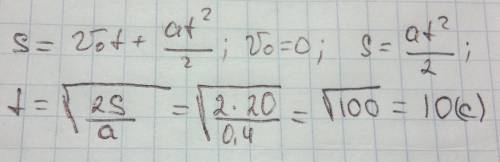 s = v₀t + at²/2; v₀=0; s = at²/2;
t = √(2s/a) = √(2·20/0,4) = √100 = 10(с)